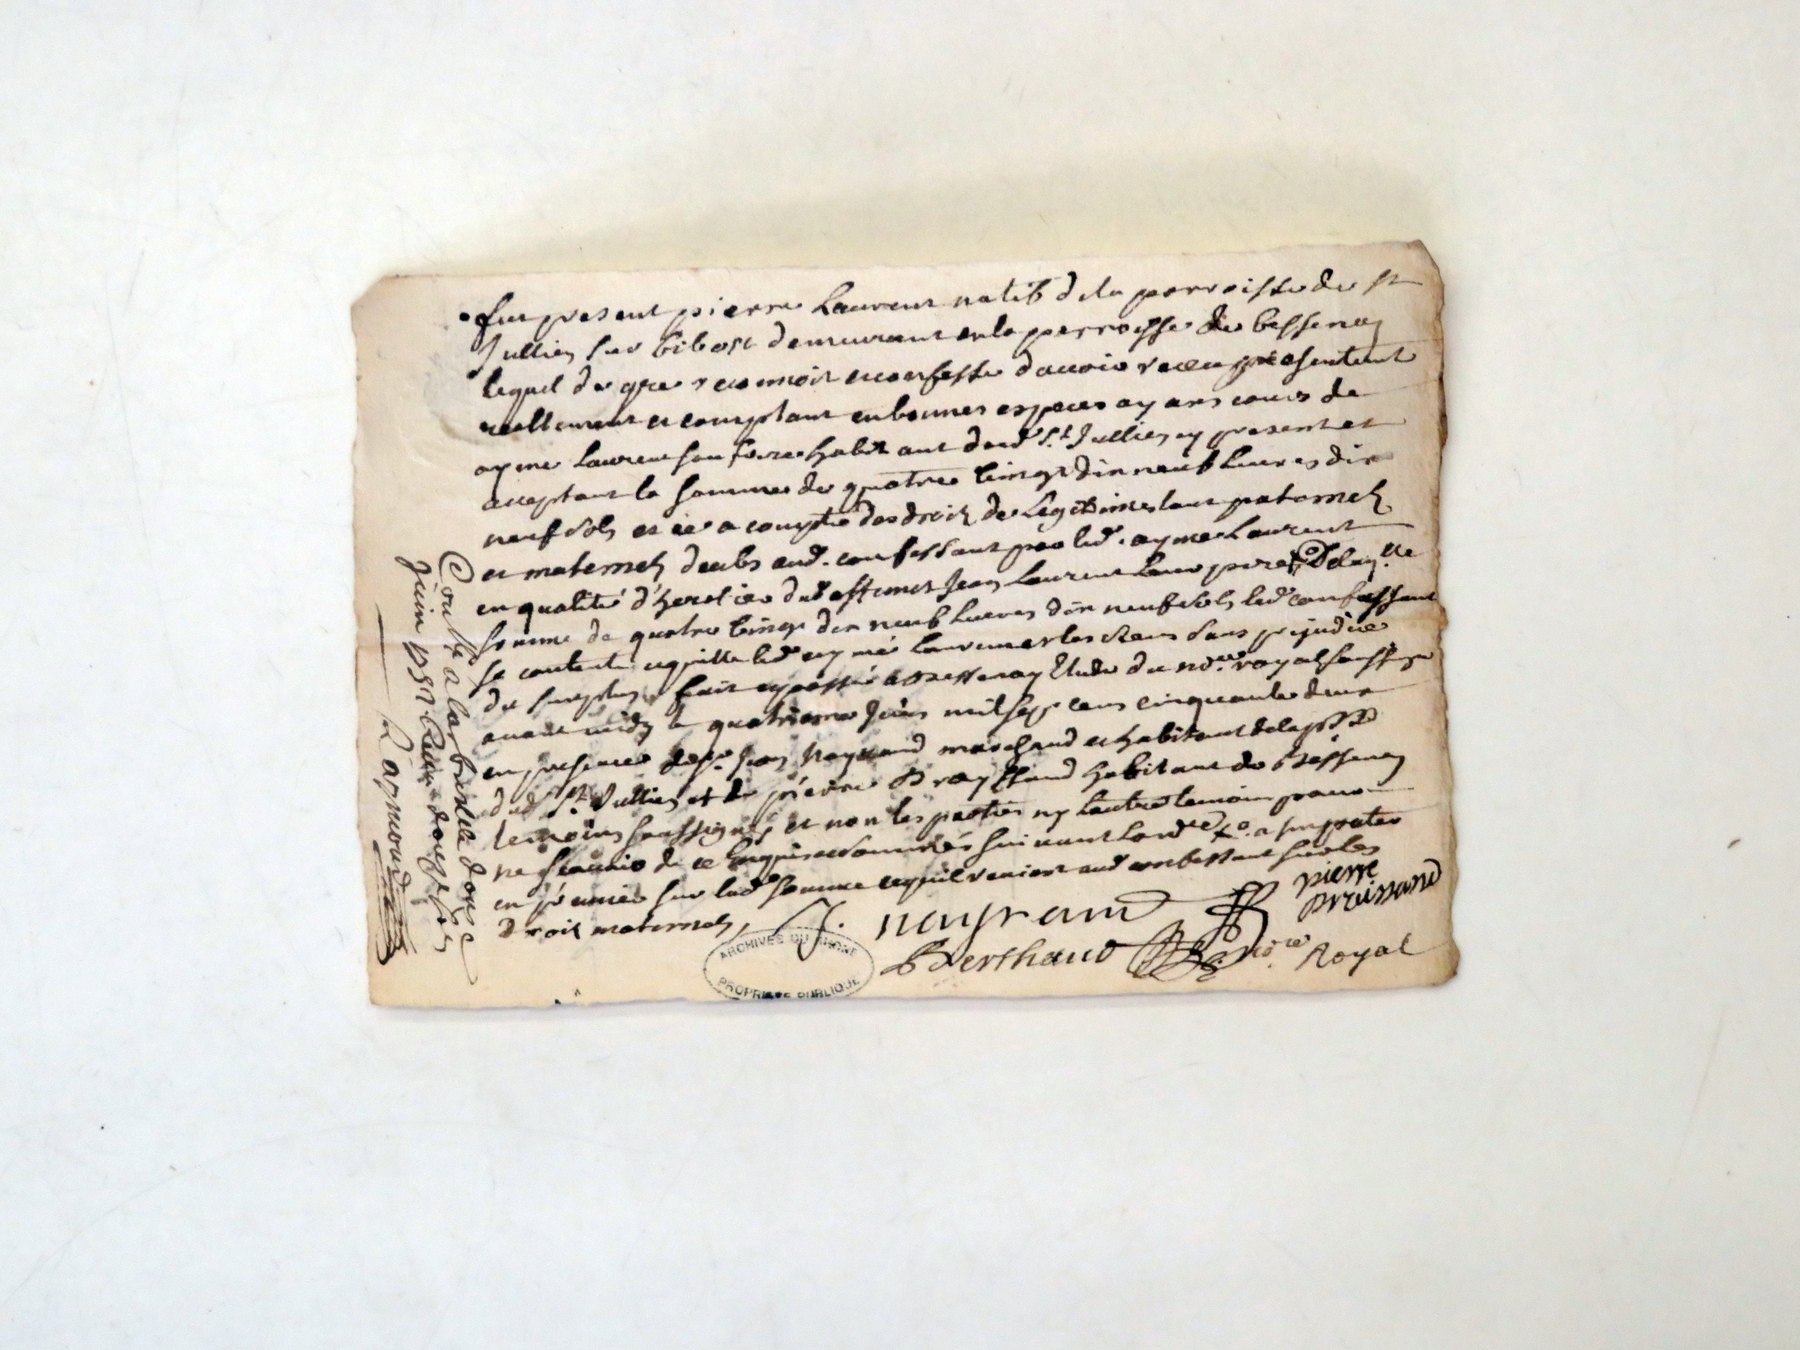 fut present pierre Laurent natif de la parroisse de st
Jullien sur bibost demeurant en la perroisse de bessenay
lequel de gré reconnoit et confesse d'avoir receu présentement
reellement et comptant en bonnes espèces ayans cours de
ayme Laurent son frere habitant dud. St Jullien cy present et
acceptant la somme de quatre vingt dix neuf livres dix
neuf sols et ce a compte des droits de Legitimes tant paternels
et maternels deubs aud. confessant par led. ayme Laurent
en qualité d'heretier dud. Jean Laurent leur pere De laq.lle
somme de quatre vingt dix neuf livres dix neuf sols led. confessant
se contente et quitte led. aymé Laurent et les siens sans prejudice
du surplus, fait et passé a Bessenay Etude du no.re royal soussigné
avant midy le quatrieme Juin mil sept cens cinquante deux
en presence de sr Jean nayrand marchand et habitant
dud. St Jullien et de pierre Brayssand habitant de Bessenay
temoins soussignés et non les parties ny
ne scavoir de ce Enquis et sommés suivant L'ord.ce
en premier sur lad. somme aud. confessant sur les
Droits maternels,
J. nayrand
pierre
Braissand
Berthaud no.re Royal
Conllé a larbresle douze
Juin 1752 Reçu douze sols
Raymond
ARCHIVES DU RHONE
PROPRIETE PUBLIQUE